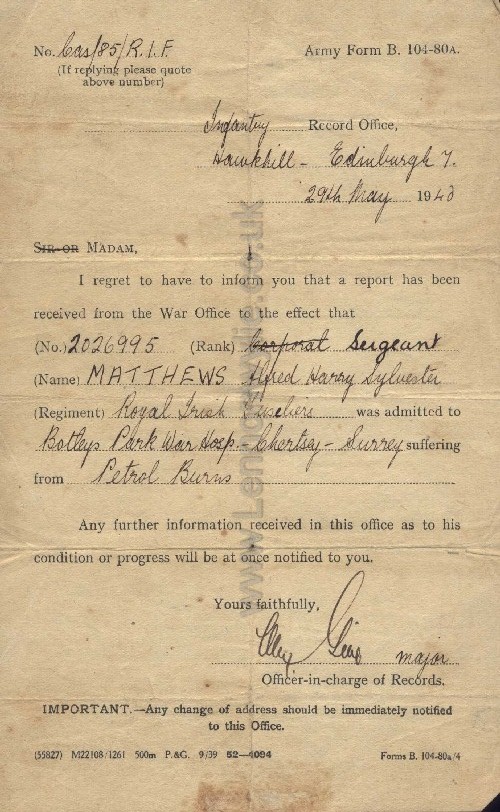 No. Cas/85/R.I.F. Army Form B. 104-80A.
(If replying please quote
above number)
Infantry Record Office,
Hawkhill - Edinburgh 7.
29th May 1940
SIR OR MADAM,
I regret to have to inform you that a report has been
received from the War Office to the effect that
(No.) 2026995 (Rank) Corporal Sergeant
(Name) MATTHEWS Alfred Harry Sylvester
(Regiment) Royal Irish Fusiliers was admitted to
Botleys Park War Hosp. - Chertsey - Surrey suffering
from Petrol Burns
Any further information received in this office as to his
condition or progress will be at once notified to you.
Yours faithfully,
major
Officer-in-charge of Records.
IMPORTANT.—Any change of address should be immediately notified
to this Office.
(55827) M22108/1261 500m P.&G. 9/39 52—4094 Forms B. 104-80A/4